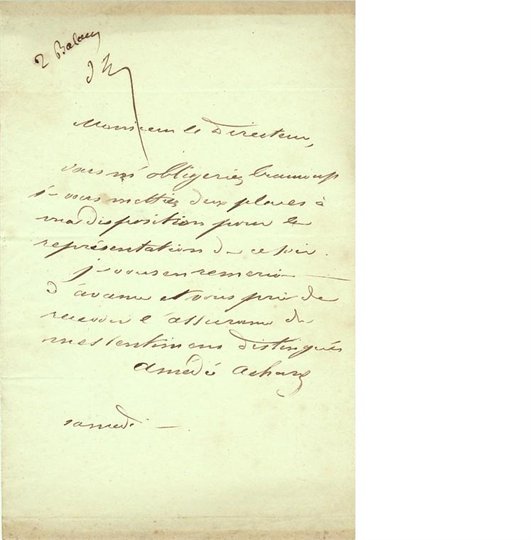 2 Balcon
Monsieur le Directeur,
vous m'obligeriez beaucoup
si vous mettiez deux places à
ma disposition pour la
représentation de ce soir.
je vous en remercie
d'avance et vous prie de
recevoir l'assurance de
mes sentimens distingués
Amédée Achard
samedi —